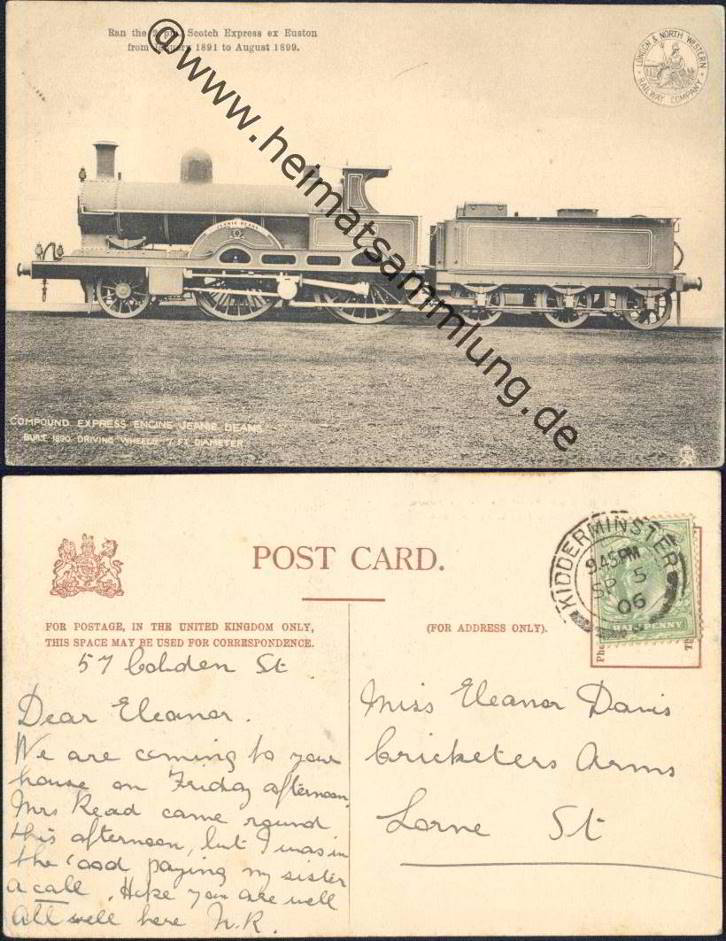 Ran the Scotch Express ex Euston
from January 1891 to August 1899.
LONDON & NORTH WESTERN
RAILWAY COMPANY
@www.heimatsammlung.de
JEANIE DEANS
COMPOUND EXPRESS ENGINE "JEANIE DEANS"
BUILT 1890. DRIVING WHEELS 7 FT. DIAMETER
POST CARD.
FOR POSTAGE, IN THE UNITED KINGDOM ONLY,
THIS SPACE MAY BE USED FOR CORRESPONDENCE.
(FOR ADDRESS ONLY).
KIDDERMINSTER
9.45PM
SP 5
06
HALFPENNY
57 St
Dear Eleanor.
We are coming to your
house on Friday afternoon.
Mrs Read came round
this afternoon, but I was in
the paying my sister
a call. Hope you are well
all well here N.R.
Miss Eleanor Davis
Cricketers Arms
Lorne St